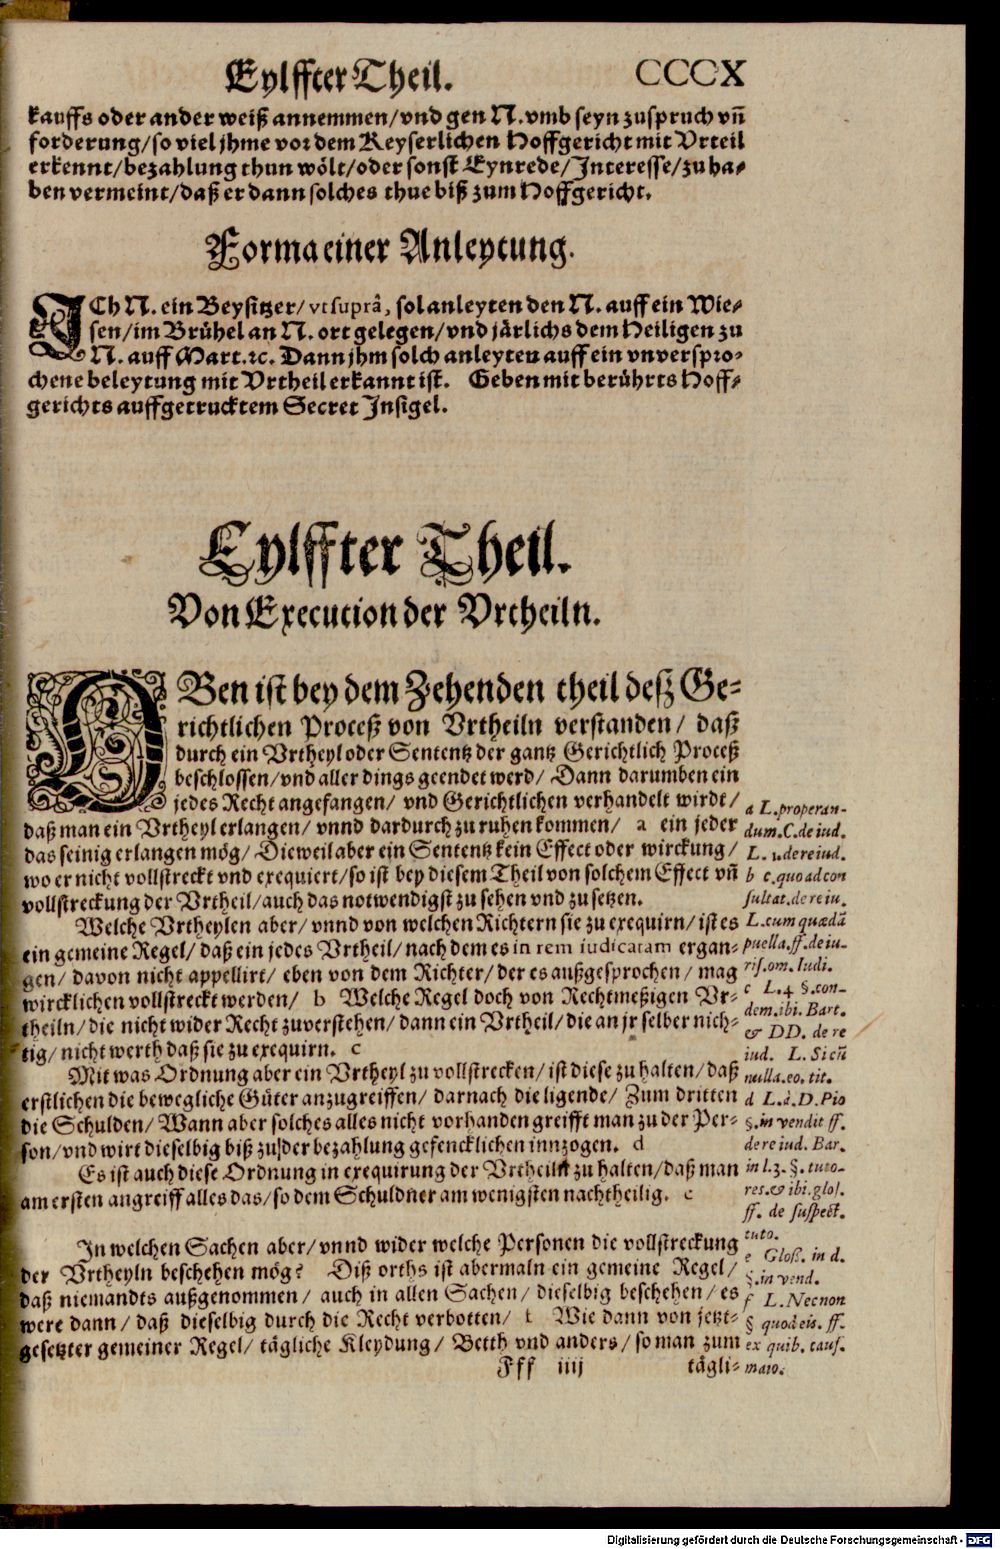 Eylffter Theil. CCCX
kauffs oder ander weiß annemmen/ vnd gen N. vmb seyn zuspruch vñ
forderung/ so viel jhme vor dem Keyserlichen Hoffgericht mit Vrteil
erkennt/ bezahlung thun wölt/ oder sonst Eynrede/ Interesse/ zu ha-
ben vermeint/ daß er dann solches thue biß zum Hoffgericht.
Forma einer Anleytung.
ICh N. ein Beysitzer/ vt suprà, sol anleyten den N. auff ein Wie-
sen/ im Brühel an N. ort gelegen/ vnd järlichs dem Heiligen zu
N. auff Mart. ꝛc. Dann jhm solch anleyten auff ein vnverspro-
chene beleytung mit Vrtheil erkannt ist. Geben mit berührts Hoff-
gerichts auffgetrucktem Secret Insigel.
Eylffter Theil.
Von Execution der Vrtheiln.
OBen ist bey dem Zehenden theil deß Ge-
richtlichen Proceß von Vrtheiln verstanden/ daß
durch ein Vrtheyl oder Sententz der gantz Gerichtlich Proceß
beschlossen/ vnd aller dings geendet werd/ Dann darumben ein
jedes Recht angefangen/ vnd Gerichtlichen verhandelt wirdt/
daß man ein Vrtheyl erlangen/ vnnd dardurch zu ruhen kommen/ a ein jeder
das seinig erlangen mög/ Dieweil aber ein Sententz kein Effect oder wirckung/
wo er nicht vollstreckt vnd exequiert/ so ist bey diesem Theil von solchem Effect vñ
vollstreckung der Vrtheil/ auch das notwendigst zu sehen vnd zu setzen.
Welche Vrtheylen aber/ vnnd von welchen Richtern sie zu exequirn/ ist es
ein gemeine Regel/ daß ein jedes Vrtheil/ nach dem es in rem iudicatam ergan-
gen/ davon nicht appellirt/ eben von dem Richter/ der es außgesprochen/ mag
wircklichen vollstreckt werden/ b Welche Regel doch von Rechtmeßigen Vr-
theiln/ die nicht wider Recht zuverstehen/ dann ein Vrtheil/ die an jr selber nich-
tig/ nicht werth daß sie zu exequirn. c
Mit was Ordnung aber ein Vrtheyl zu vollstrecken/ ist diese zu halten/ daß
erstlichen die bewegliche Güter anzugreiffen/ darnach die ligende/ Zum dritten
die Schulden/ Wann aber solches alles nicht vorhanden greifft man zu der Per-
son/ vnd wirt dieselbig biß zu der bezahlung gefencklichen innzogen. d
Es ist auch diese Ordnung in exequirung der Vrtheiln zu halten/ daß man
am ersten angreiff alles das/ so dem Schuldner am wenigsten nachtheilig. e
In welchen Sachen aber/ vnnd wider welche Personen die vollstreckung
der Vrtheyln beschehen mög? Diß orths ist abermaln ein gemeine Regel/
daß niemandts außgenommen/ auch in allen Sachen/ dieselbig beschehen/ es
were dann/ daß dieselbig durch die Recht verbotten/ f Wie dann von jetzt-
gesetzter gemeiner Regel/ tägliche Kleydung/ Betth vnd anders/ so man zum
Fff iiij tägli-
a L.properan-
dum.C.de iud.
L. 1.de re iud.
b c.quo ad con
sultat.de re iu.
L.cum quædã
puella.ff.de iu-
ris.om.Iudi.
c L.4 §.con-
dem.ibi.Bart.
& DD. de re
iud. L. Si cũ
nulla.eo.tit.
d L.à.D.Pio
§.in vendit ff.
de re iud. Bar.
in l.3.§.tuto-
res.& ibi.glos.
ff. de suspect.
tuto.
e Gloß. in d.
§.in vend.
f L.Necnon
§ quod eis. ff.
ex quib. caus.
maio.
Digitalisierung gefördert durch die Deutsche Forschungsgemeinschaft - DFG